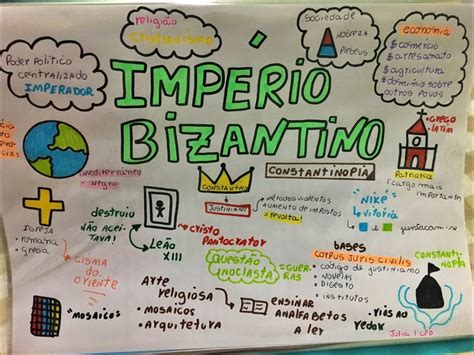 Poder Político
centralizado
IMPERADOR
religião
cristianismo
Sociedade
NOBREZA
Plebeus
economia
$comércio
$artesanato
$agricultura
$domínio sobre
outros povos
IMPÉRIO
BIZANTINO
CONSTANTINOPLA
GREGO
LATIM
Patriarca
(cargo mais
importante)
mediterrâneo
- Negro
CONSTANTINO
JUSTINIANO
métodos violentos
aumento de impostos
= revolta!
NIKE
vitória
IGREJA
- romana
- grega
CISMA
DO
ORIENTE
destruiu
NÃO ACEI-
TAVA!
LEÃO
XIII
CRISTO
Pantocrator
QUESTÃO
INOCLASTA
=GUE-
RRAS
bases
CORPUS JURIS CIVILIS
• código de justiniano
• NOVELAS
• DIGESTO
• INSTITUTOS
CONSTANTI-
NOPLA
MOSAICOS
Arte
religiosa
• MOSAICOS
• Arquitetura
ENSINAR
ANALFABETOS
A LER
Julia 1°